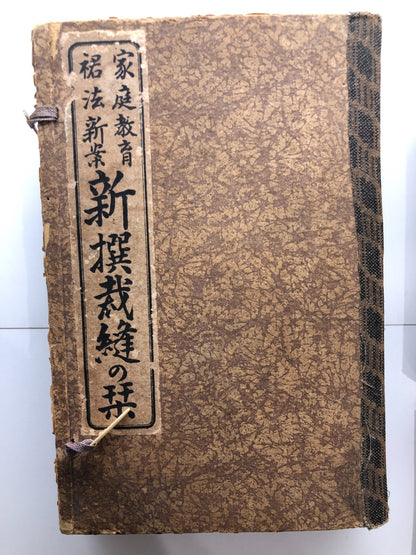 家庭教育
裾法新案
新撰裁縫の栞